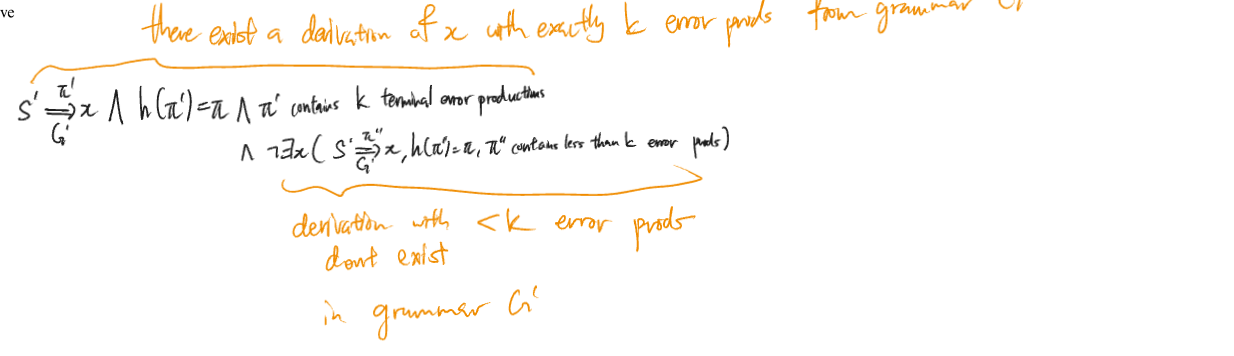 ve
there exist a derivation of x with exactly k error prods from grammar G'
S' ⇒ x ∧ h(π') = π ∧ π' contains k terminal error productions
π'
G'
∧ ¬∃x( S' ⇒ x, h(π') = π, π'' contains less than k error prods)
π''
G'
derivation with <k error prods
dont exist
in grammar G'